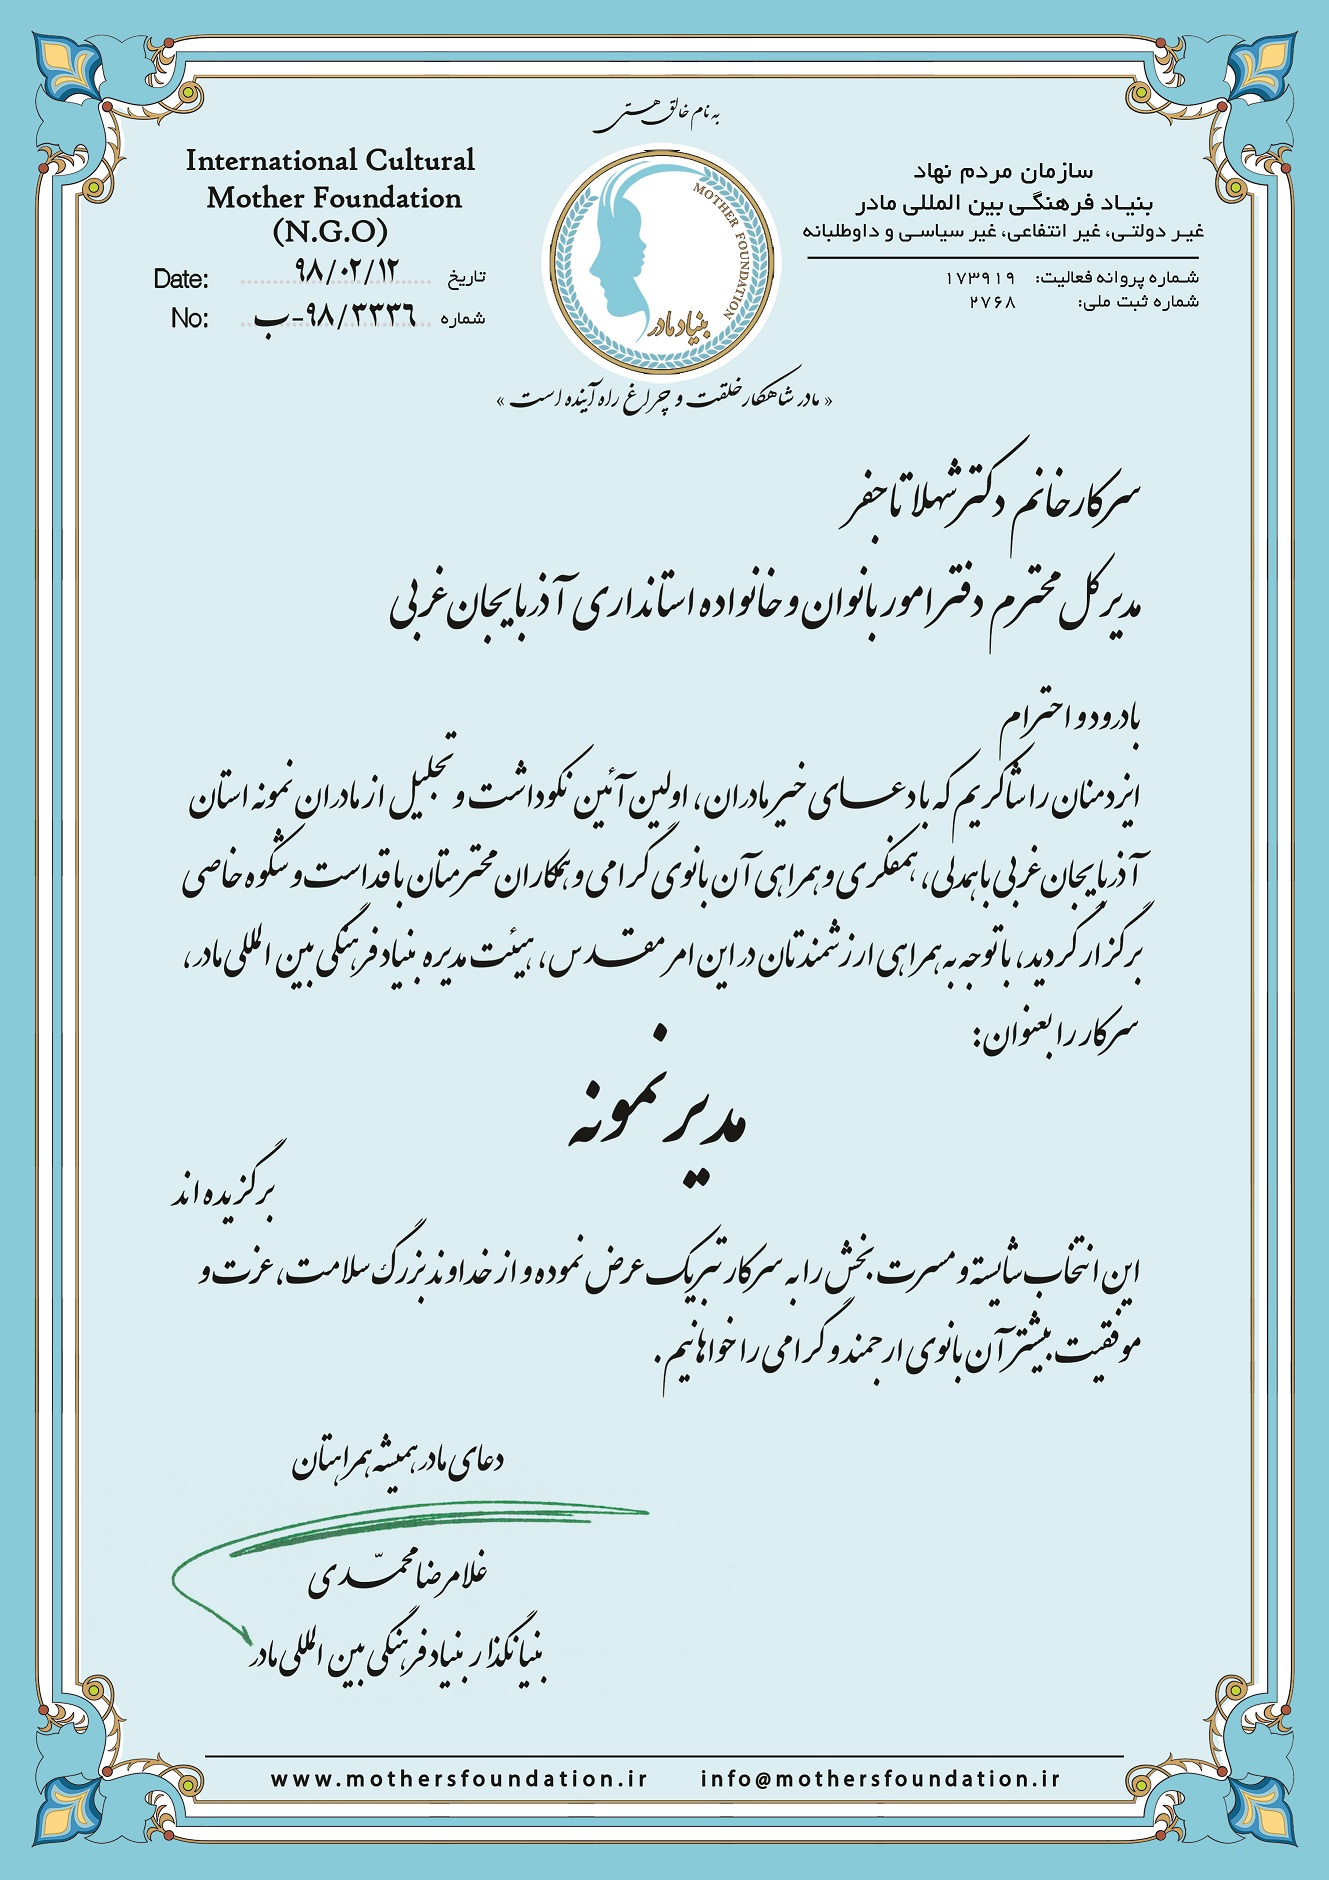 به نام خالق هستی
International Cultural
Mother Foundation
(N.G.O)
Date: ۹۸/۰۲/۱۲ تاریخ
No: ۹۸/۳۳۳۶-ب شماره
MOTHER FOUNDATION
بنیاد مادر
سازمان مردم نهاد
بنیاد فرهنگی بین المللی مادر
غیر دولتی، غیر انتفاعی، غیر سیاسی و داوطلبانه
شماره پروانه فعالیت: ۱۷۳۹۱۹
شماره ثبت ملی: ۲۷۶۸
« مادر شاهکار خلقت و چراغ راه آینده است »
سرکار خانم دکتر شهلا تاجفر
مدیرکل محترم دفتر امور بانوان و خانواده استانداری آذربایجان غربی
با درود و احترام
ایزد منان را شاکریم که با دعای خیر مادران، اولین آئین نکوداشت و تجلیل از مادران نمونه استان
آذربایجان غربی با همدلی، همفکری و همراهی آن بانوی گرامی و همکاران محترمتان با قداست و شکوه خاصی
برگزار گردید، با توجه به همراهی ارزشمندتان در این امر مقدس، هیئت مدیره بنیاد فرهنگی بین المللی مادر،
سرکار را بعنوان:
مدیر نمونه
برگزیده اند
این انتخاب شایسته و مسرت بخش را به سرکار تبریک عرض نموده و از خداوند بزرگ سلامت، عزت و
موفقیت بیشتر آن بانوی ارجمند و گرامی را خواهانیم.
دعای مادر همیشه همراهتان
غلامرضا محمّدی
بنیانگذار بنیاد فرهنگی بین المللی مادر
www.mothersfoundation.ir info@mothersfoundation.ir